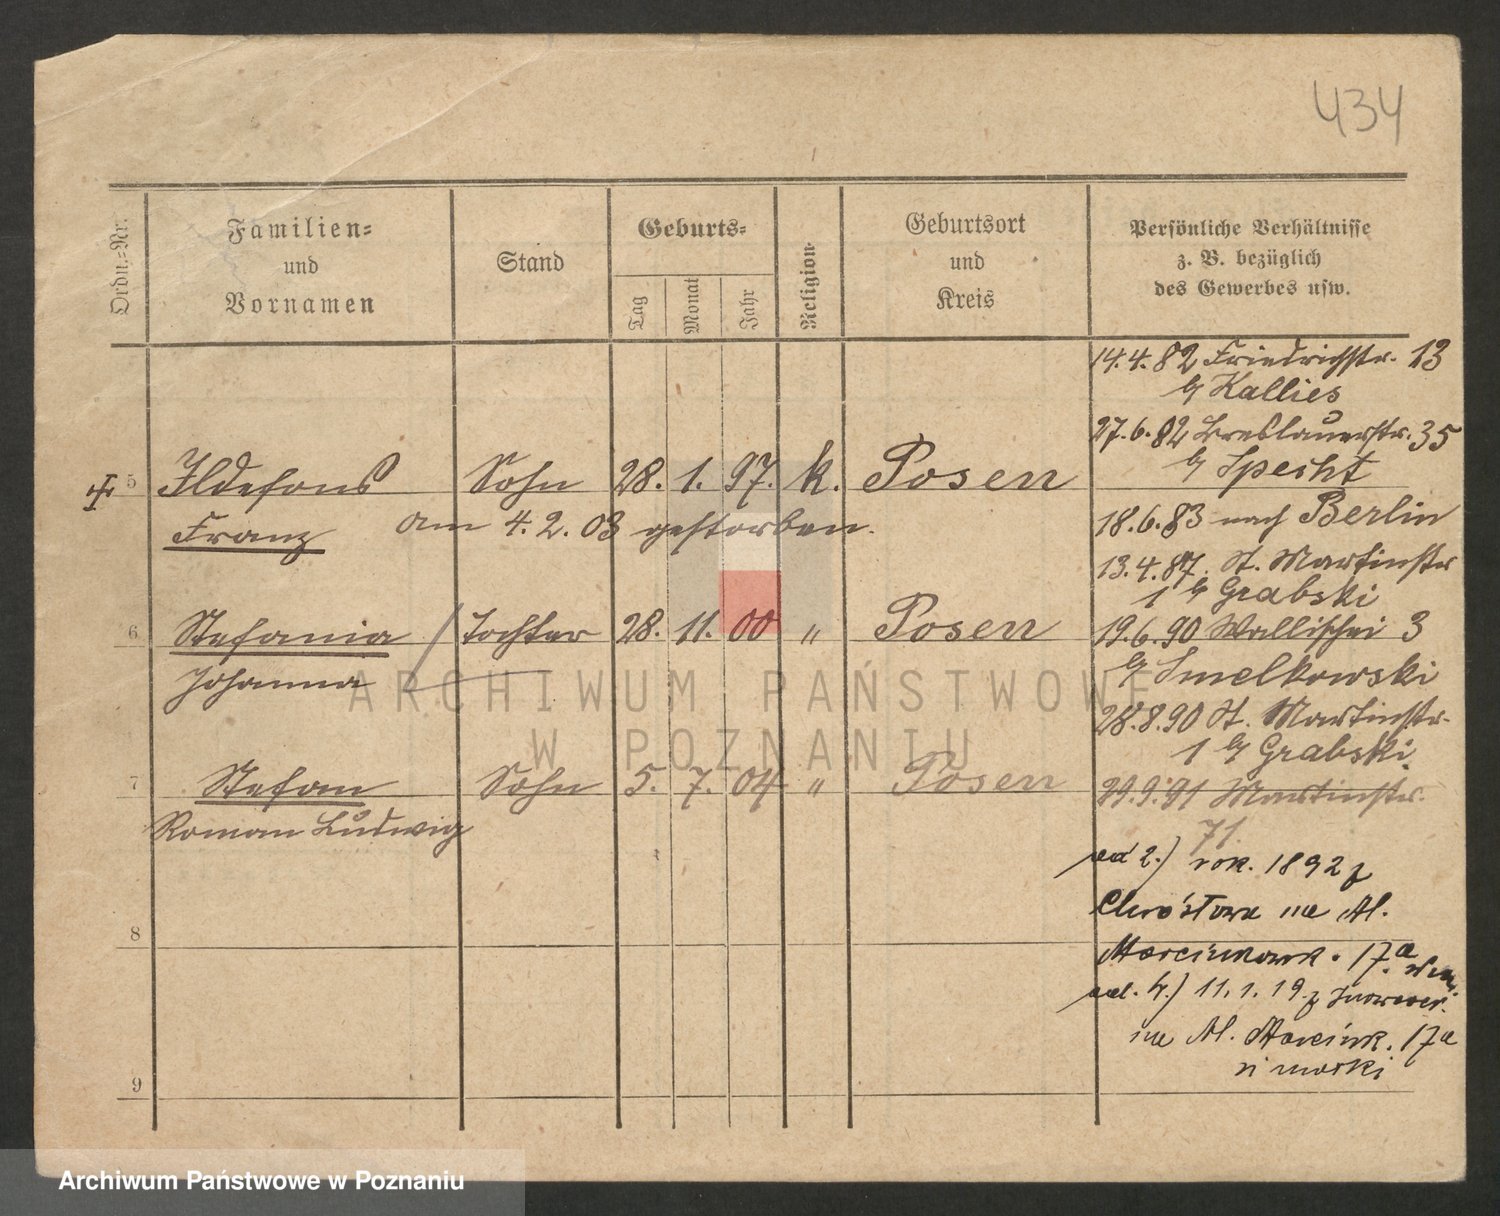 434
Ordn.-Nr.
Familien-
und
Vornamen
Stand
Geburts-
Tag
Monat
Jahr
Religion
Geburtsort
und
Kreis
Persönliche Verhältnisse
z. B. bezüglich
des Gewerbes usw.
14.4.82 Friedrichstr. 13
b/ Kallies
27.6.82 Breslauerstr. 35
b/ Specht
18.6.83 nach Berlin
13.4.87. St. Martinstr
1 b/ Grabski
19.6.90 Wallischei 3
b/ Smelkowski
28.8.90 St. Martinstr.
1 b/ Grabski.
29.9.91 Martinstr.
71.
ad 2.) rok. 1892 z
Chwóstowa na Al.
Marcinkowsk. 17a
ad. 4.) 11.1.19 z Inowroc.
na Al. Marcink. 17a
5 Ildefons Sohn 28. 1. 97. k. Posen
Franz am 4.2.03 gestorben.
6 Stefania Tochter 28. 11. 00 " Posen
Johanna
7 Stefan Sohn 5. 7. 04 " Posen
Roman Ludwig
8
9
ARCHIWUM PAŃSTWOWE
W POZNANIU
Archiwum Państwowe w Poznaniu